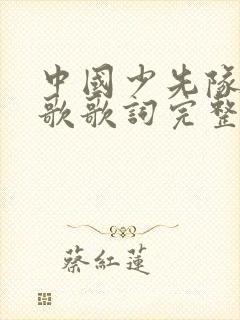 中國少先隊
歌歌詞完整
蔡紅蓮